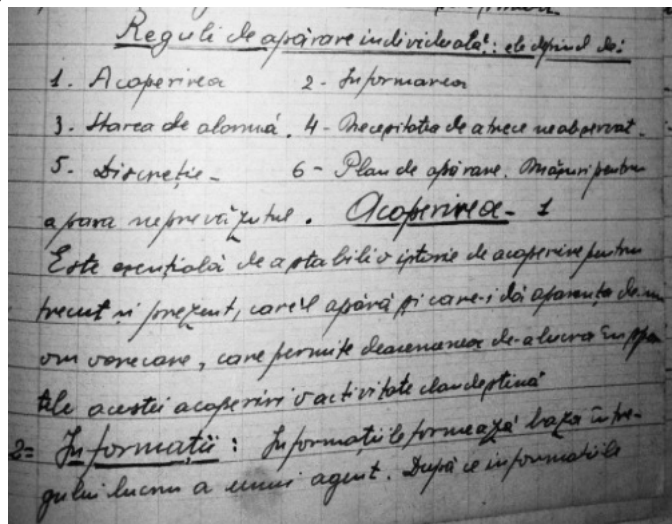 Reguli de apărare individuală: ele depind de:
1. Acoperirea 2- Informarea
3. Starea de alarmă. 4- Necesitatea de a trece neobservat.
5. Discreție- 6- Plan de apărare. Măsuri pentru
apăra neprevăzutul. Acoperirea- 1
Este esențială de a stabili o istorie de acoperire pentru
trecut și prezent, care îl apără și care-i dă aparența de un
om oarecare, care permite deasemenea de a lucra în spa-
tele acestei acoperiri o activitate clandestină
2= Informații: Informațiile formează baza între-
gului lucru a unui agent. După ce informațiile